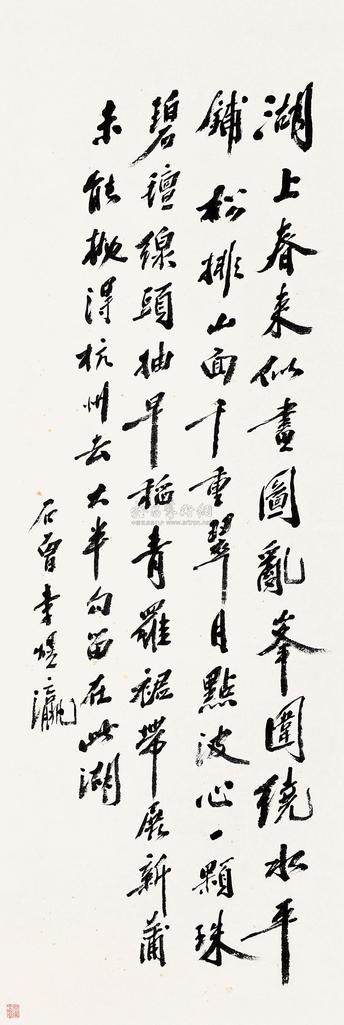 湖上春來似畫圖亂峯圍繞水平
鋪松排山面千重翠月點波心一顆珠
碧壇線頭抽早稻青羅裙帶展新蒲
未能拋得杭州去大半勾留在此湖
石曾李煜瀛